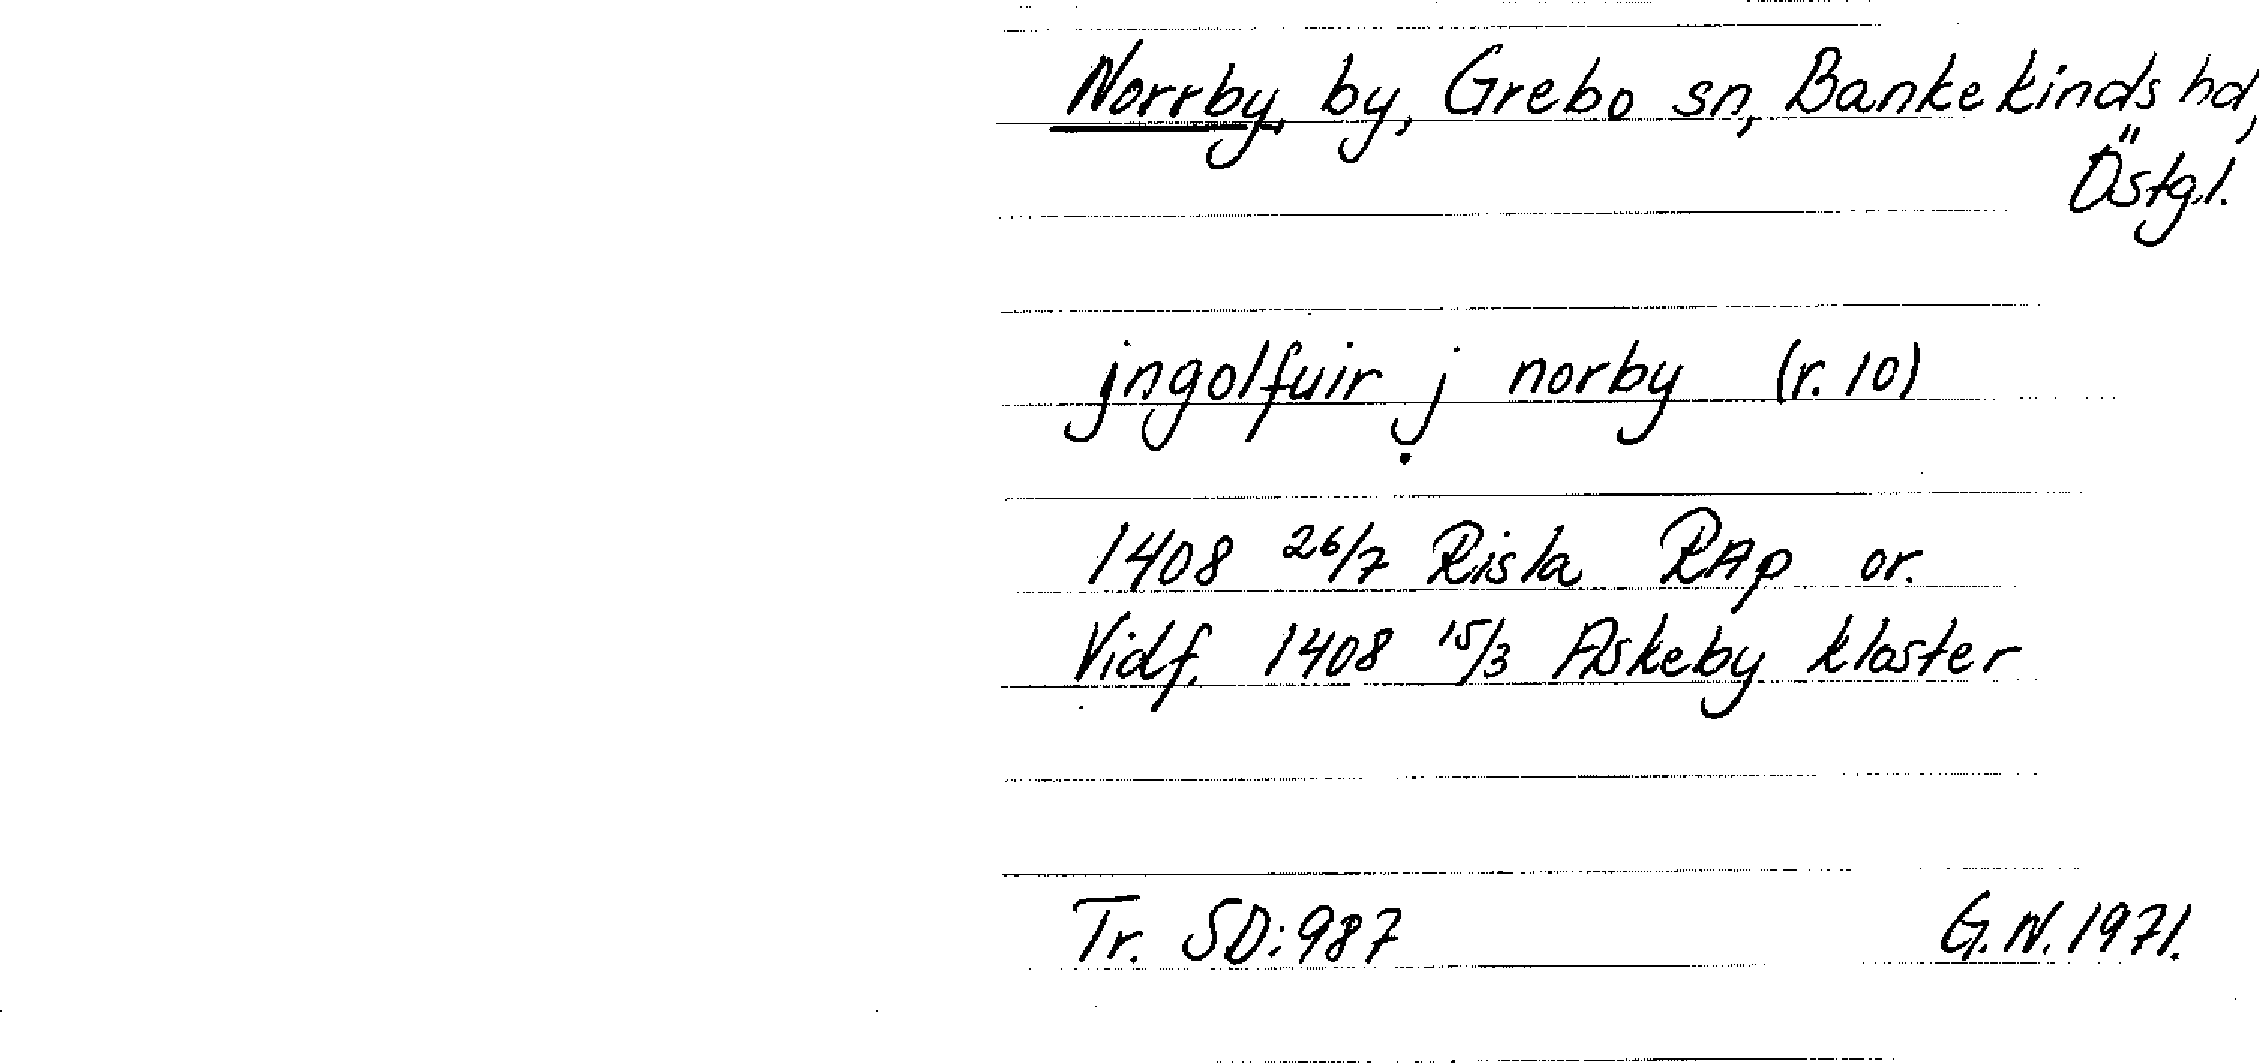 Norrby, by, Grebo sn, Bankekinds hd,
Östgl.
jngolfuir j norby (r. 10)
1408 26/7 Risla RAp or.
Vidf. 1408 15/3 Askeby kloster
Tr. SD: 987 G. N. 1971.